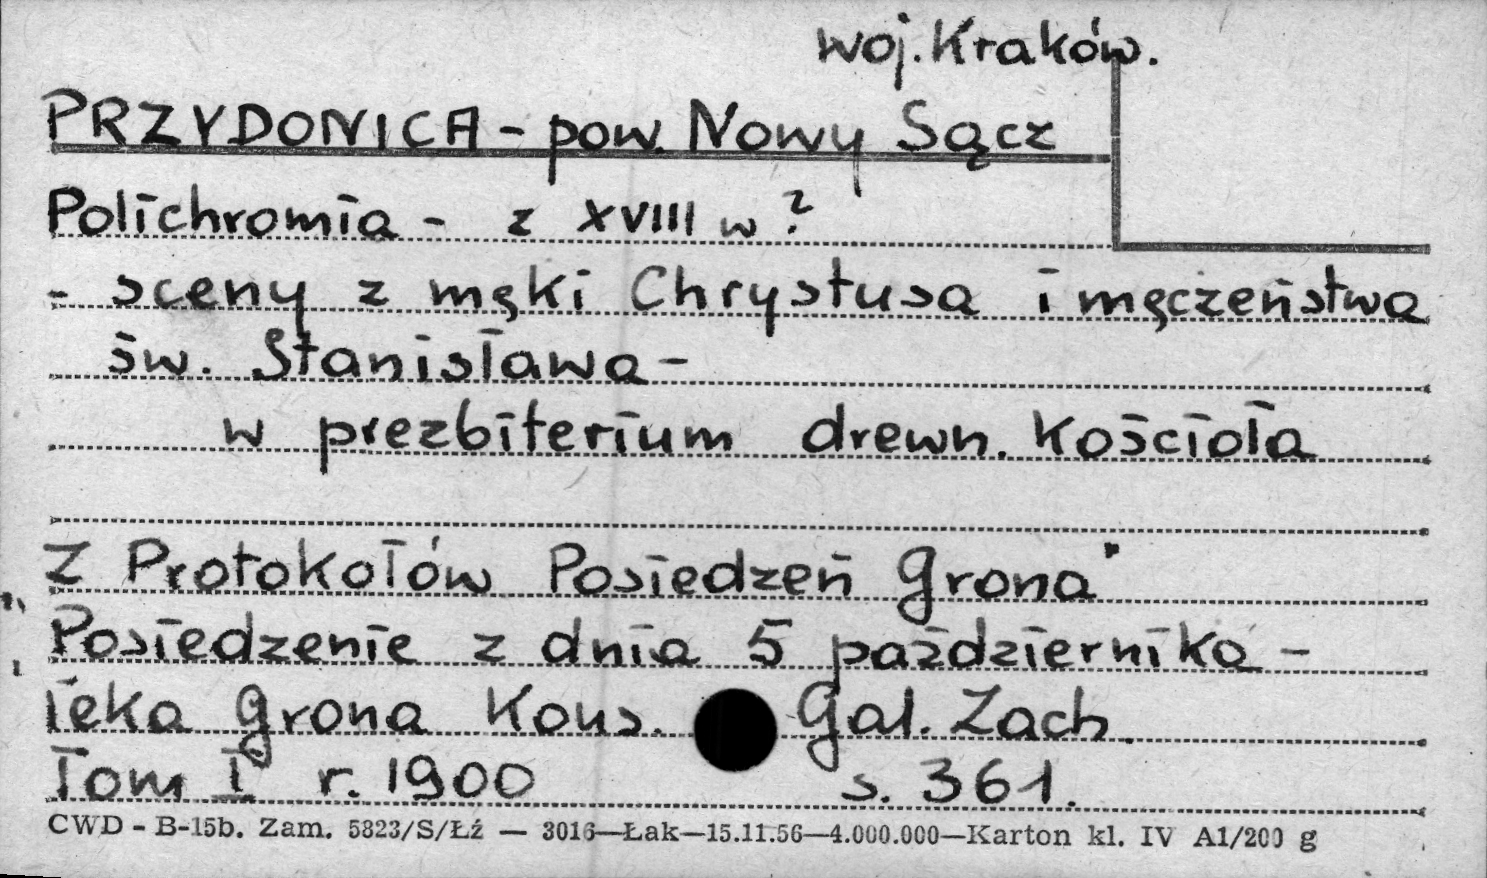 woj. Kraków.
PRZYDONICA - pow. Nowy Sącz
Polichromia - z XVIII w ?
- sceny z męki Chrystusa i męczeństwa
św. Stanisława -
w prezbiterium drewn. Kościoła
Z Protokołów Posiedzeń Grona"
"Posiedzenie z dnia 5 października -
Teka Grona Kons. Gal. Zach.
Tom I r. 1900 s. 361.
CWD - B-15b. Zam. 5823/S/Łź — 3016—Łak—15.11.56—4.000.000—Karton kl. IV A1/200 g